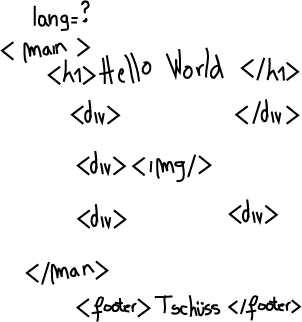 lang=?
<main>
<h1>Hello World </h1>
<div> </div>
<div><img/>
<div> <div>
</man>
<footer>Tschüss </footer>